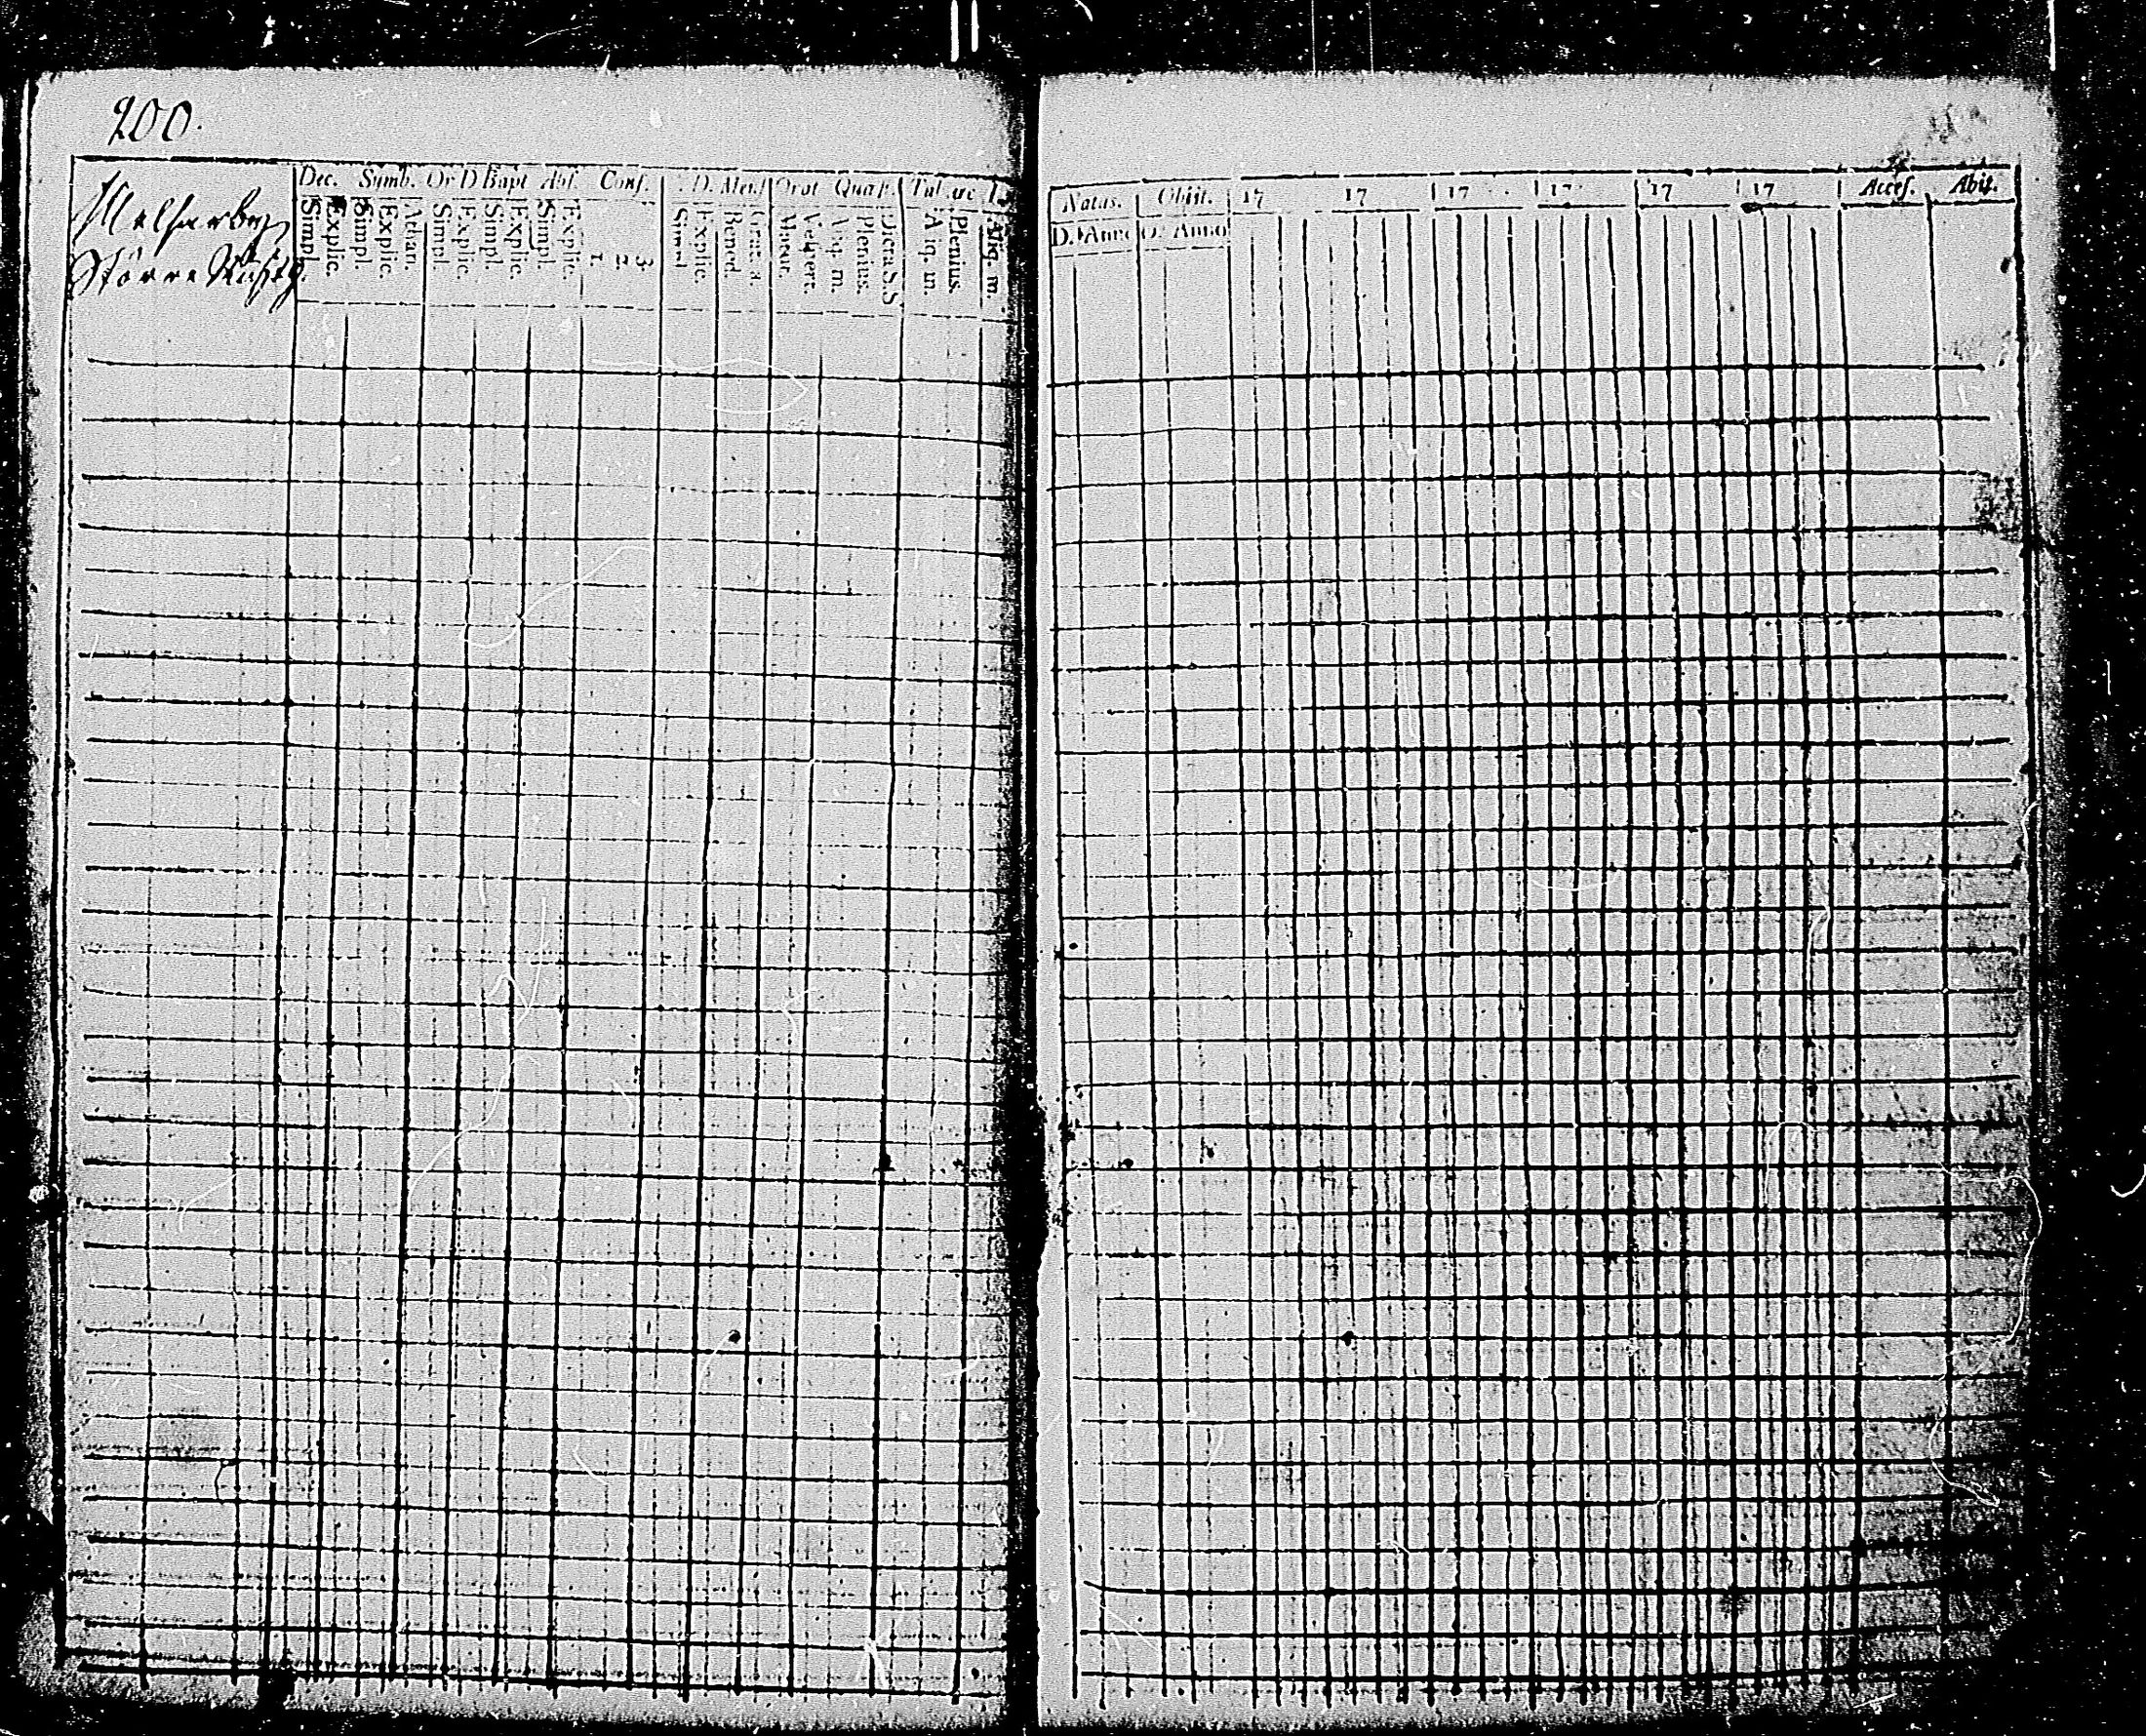 200.
Melsarby
Större Rusthg.
Dec. Symb. Or D Bapt Abs. Conf. D. Mens Orat Quæst. Tab. œc
Simpl. Explic. Simpl. Explic. Athan. Simpl. Explic. Simpl. Explic. Simpl. Explic. 1. 2. 3. Simpl. Explic. Bened. Grat. a. Matut. Vespert. Aliq. m. Plenius. Dicta S.S. Aliq. m. Plenius. Aliq. m.
Natus. Obiit. 17 17 17 17 17 17 Acces. Abit.
D. Anno D. Anno